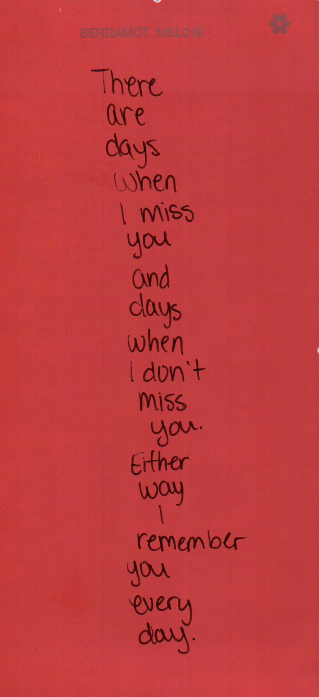 BERGAMOT MSL219
There
are
days
when
I miss
you
and
days
when
I don't
miss
you.
Either
way
I
remember
you
every
day.